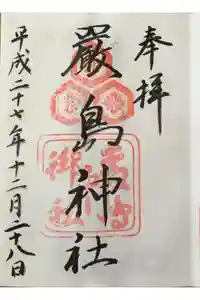 奉拝
厳島神社
平成二十七年十二月二十八日